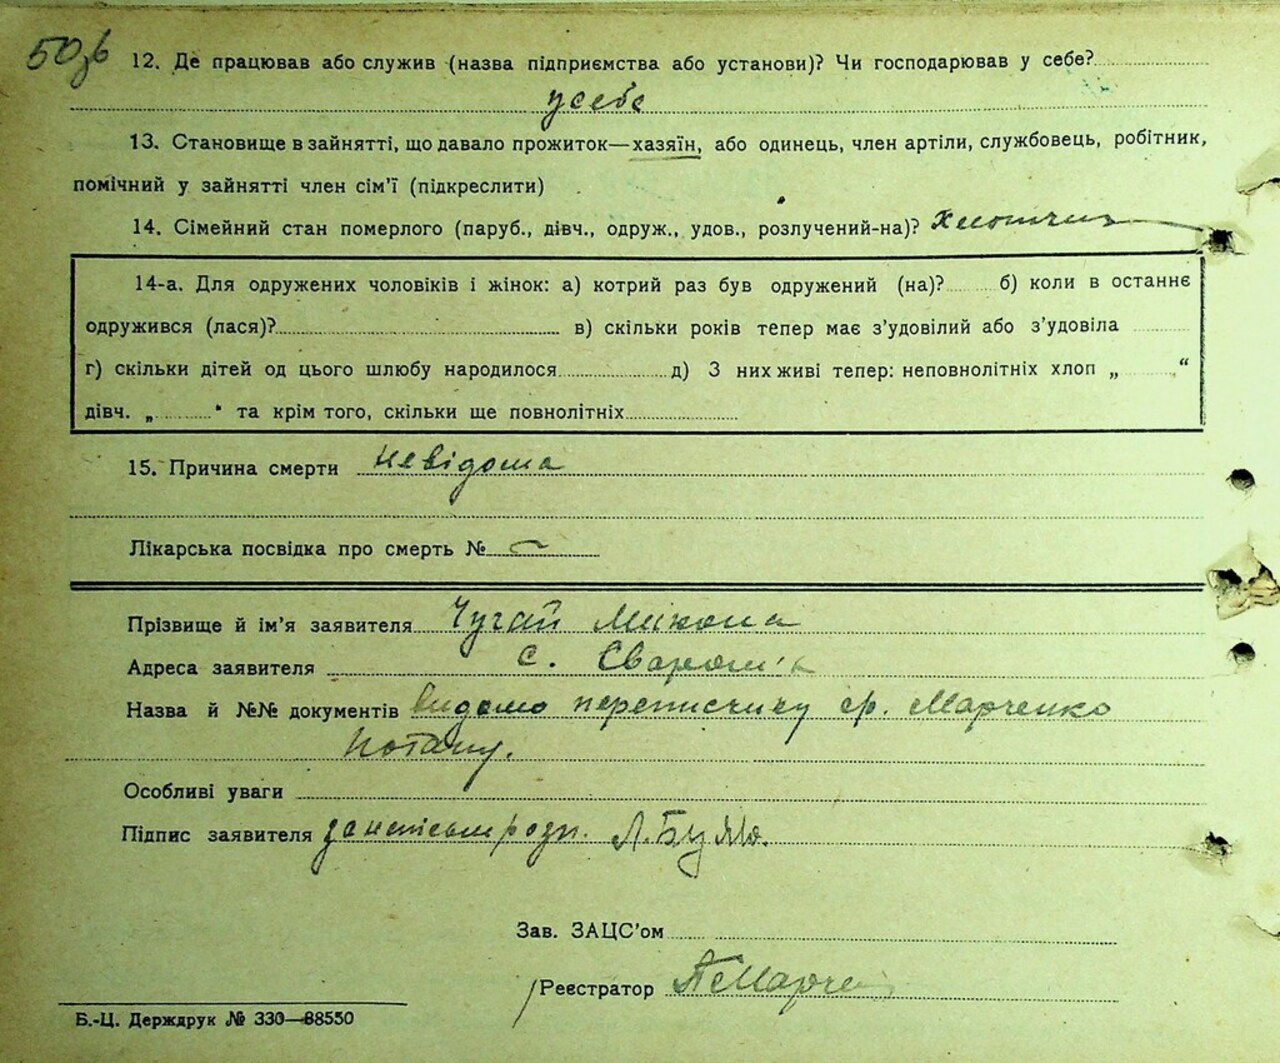 50зв
12. Де працював або служив (назва підприємства або установи)? Чи господарював у себе?
у себе
13. Становище в зайнятті, що давало прожиток—хазяїн, або одинець, член артіли, службовець, робітник,
помічний у зайнятті член сім'ї (підкреслити)
14. Сімейний стан померлого (паруб., дівч., одруж., удов., розлучений-на)? Хлопчик
14-а. Для одружених чоловіків і жінок: а) котрий раз був одружений (на)? б) коли в останнє
одружився (лася)? в) скільки років тепер має з'удовілий або з'удовіла
г) скільки дітей од цього шлюбу народилося д) З них живі тепер: неповнолітніх хлоп „ “
дівч. „ “ та крім того, скільки ще повнолітніх
15. Причина смерти невідома
Лікарська посвідка про смерть № —
Прізвище й ім'я заявителя Чугай Микола
Адреса заявителя с.
Назва й №№ документів видомо переписчику гр. Марченко
Потапу.
Особливі уваги
Підпис заявителя за неписьм розп.
Зав. ЗАЦС'ом
Реєстратор П Марче
Б.-Ц. Держдрук № 330—88550